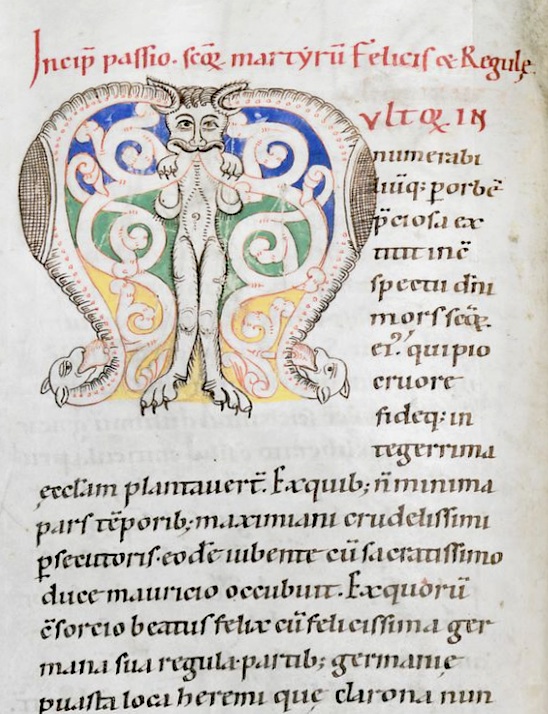 Incip̄ passio. sc̄oꝝ martyrū Felicis & Regulę
MVLTOꝝ IN
numerabi
liūq; ꝑ orbē
p̄ciosa ex
titit in c̄
spectu dn̄i
mors sc̄oꝝ.
 quipio
cruore
fideq; in
tegerrima
eccl̄am plantaver̄t. Ex quib; n̄ minima
pars tēporib; maximiani crudelissimi
ꝑsecutoris. eodē iubente cū sacratissimo
duce mauricio occubuit. Ex quorū
c̄sorcio beatus felix cū felicissima ger
mana sua regula partib; germanię
ꝑ uasta loca heremi quę clarona nun